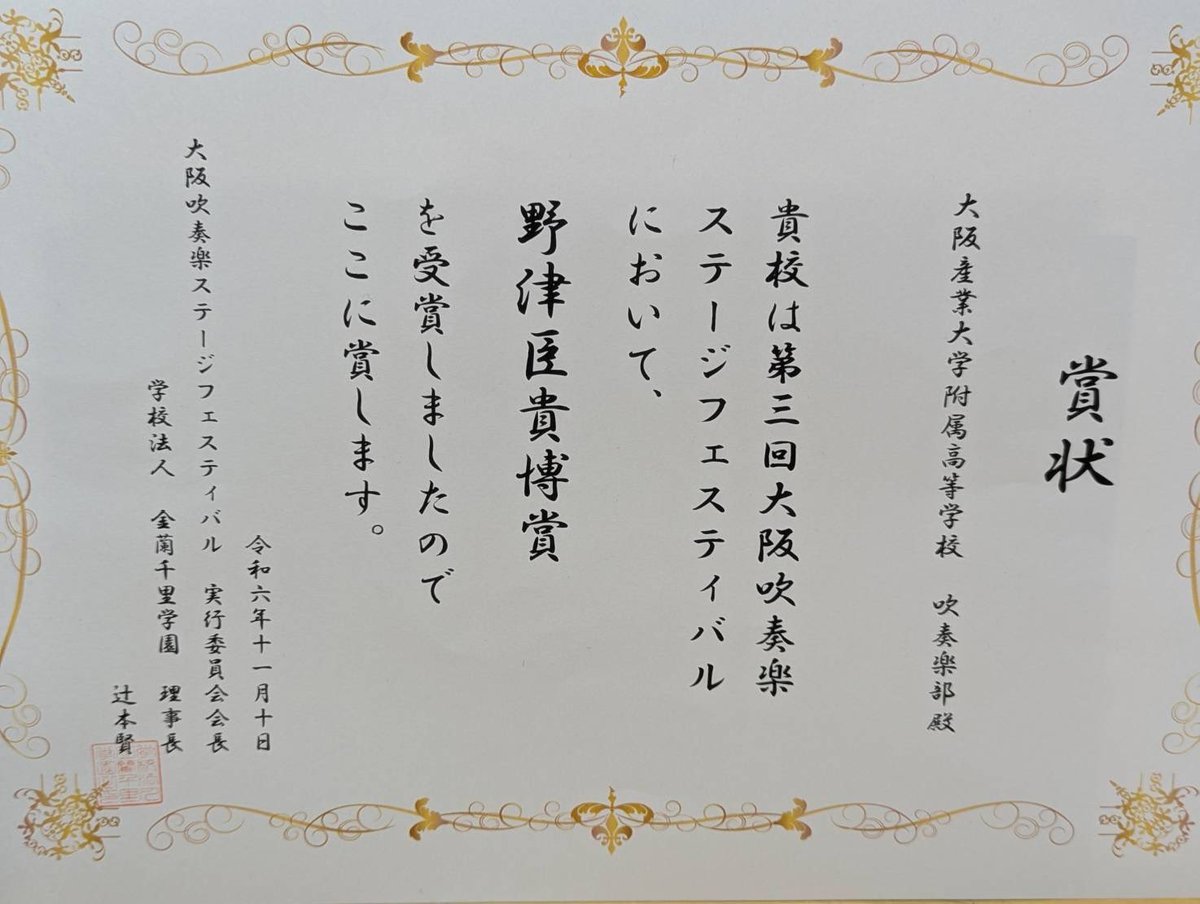 賞状
大阪産業大学附属高等学校　吹奏楽部殿
貴校は第三回大阪吹奏楽
ステージフェスティバル
において、
野津臣貴博賞
を受賞しましたので
ここに賞します。
令和六年十一月十日
大阪吹奏楽ステージフェスティバル　実行委員会会長
学校法人　金蘭千里学園　理事長
辻本賢